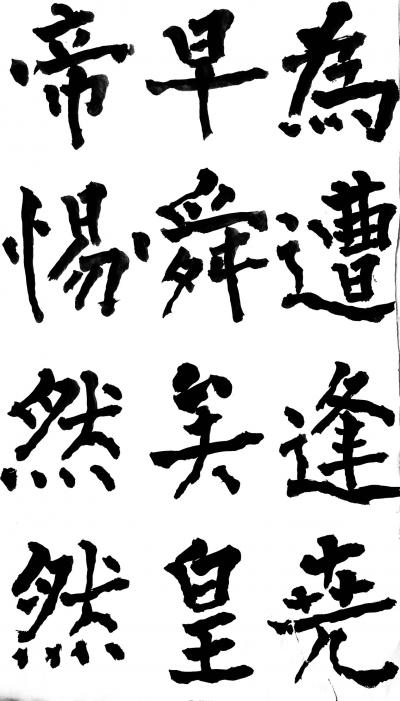 為遭逢堯
早舜矣皇
帝惕然然